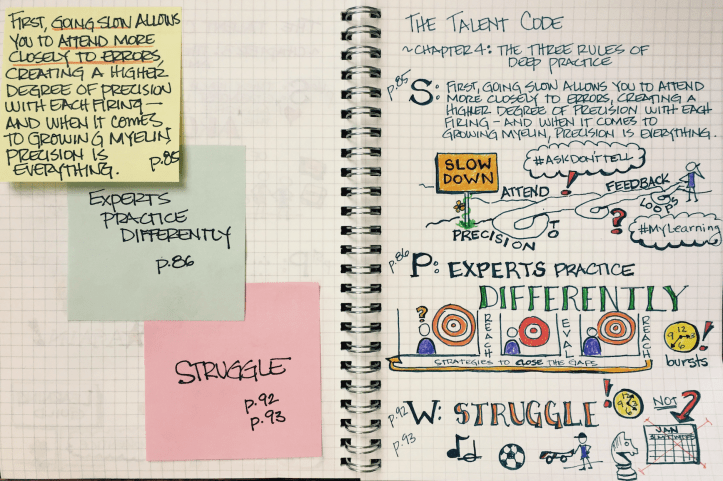 FIRST, GOING SLOW ALLOWS
YOU TO ATTEND MORE
CLOSELY TO ERRORS,
CREATING A HIGHER
DEGREE OF PRECISION
WITH EACH FIRING—
AND WHEN IT COMES
TO GROWING MYELIN,
PRECISION IS
EVERYTHING. p.85
EXPERTS
PRACTICE
DIFFERENTLY
p.86
STRUGGLE
p.92
p.93
THE TALENT CODE
~CHAPTER 4: THE THREE RULES OF
DEEP PRACTICE
p.85
S: FIRST, GOING SLOW ALLOWS YOU TO ATTEND
MORE CLOSELY TO ERRORS, CREATING A
HIGHER DEGREE OF PRECISION WITH EACH
FIRING—AND WHEN IT COMES TO
GROWING MYELIN, PRECISION IS EVERYTHING.
SLOW
DOWN
#ASKDON'TTELL
ATTEND
!
FEEDBACK
LOOPS
TO
PRECISION
?
#MyLearning
p.86
P: EXPERTS PRACTICE
DIFFERENTLY
?
REACH
EVAL
REACH
STRATEGIES TO CLOSE THE GAPS
12
9 3
6
!
bursts
p.92
p.93
W: STRUGGLE
!
12
9 3
6
NOT
JAN